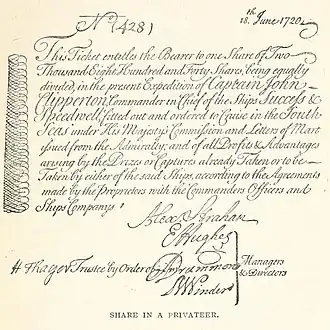 No. (428)
18.th June 1720.
This Ticket entitles the Bearer to one Share of Two
Thousand Eight Hundred and Forty Shares, being equally
divided, in the present Expedition of Captain John
Clipperton Commander in Chief of the Ships Success &
Speedwell, fitted out and ordered to Cruise in the South
Seas under His Majesty's Commission and Letters of Mart
issued from the Admiralty; and of all Profits & Advantages
arising by the Prizes or Captures already Taken or to be
Taken by either of the said Ships, according to the Agreements
made by the Proprietors with the Commanders Officers and
Ships Companys.
Alex Strahan
E Hughes
H Thayer Trustee by Order of Drummond Managers
& Directors
Winder
SHARE IN A PRIVATEER.